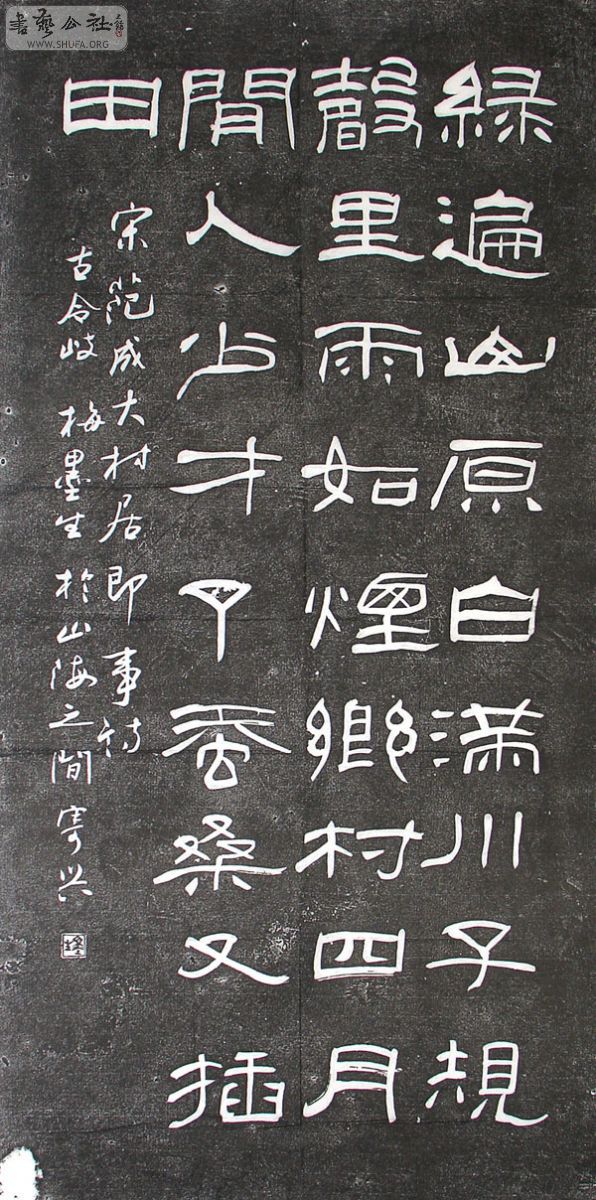 書藝公社
WWW.SHUFA.ORG
綠遍山原白滿川子規
聲里雨如煙鄉村四月
間人少才了蚕桑又插
田
宋范成大村居即事诗
古令岐 梅墨生 於山海之間 寄兴